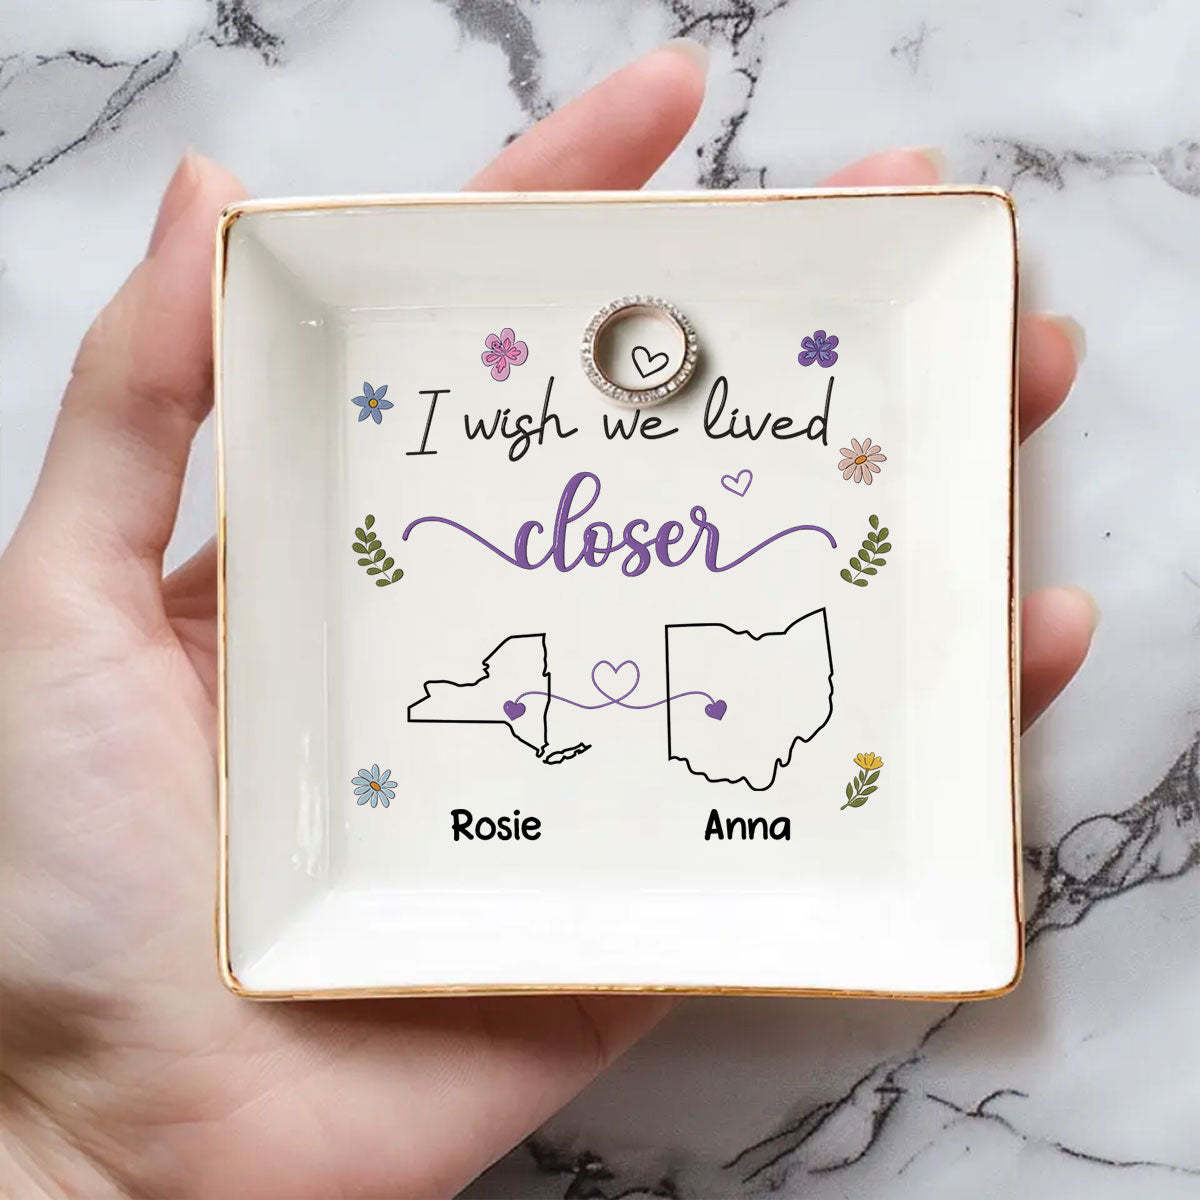 I wish we lived
closer
Rosie
Anna